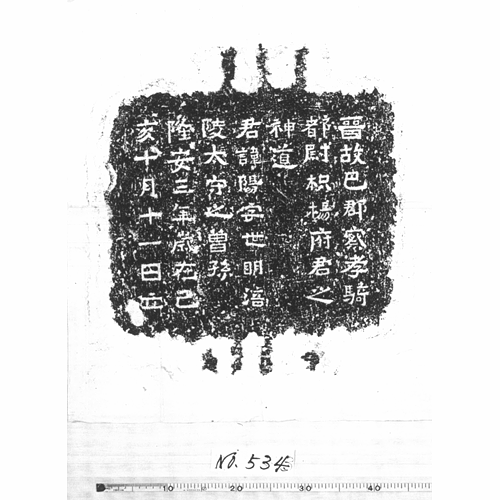 晉故巴郡察孝騎
都尉枳楊府君之
神道
君諱陽字世明涪
陵太守之曾孫
隆安三年歲在己
亥十月十一日立
No. 534
10 20 30 40